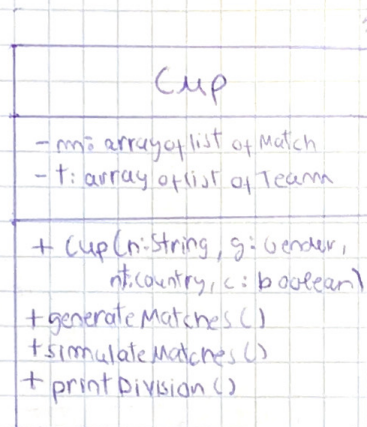 Cup
- m: array of list of Match
- t: array of list of Team
+ Cup(n:String, g:Gender,
nt:country, c:boolean)
+generateMatches()
+simulateMatches()
+ printDivision()